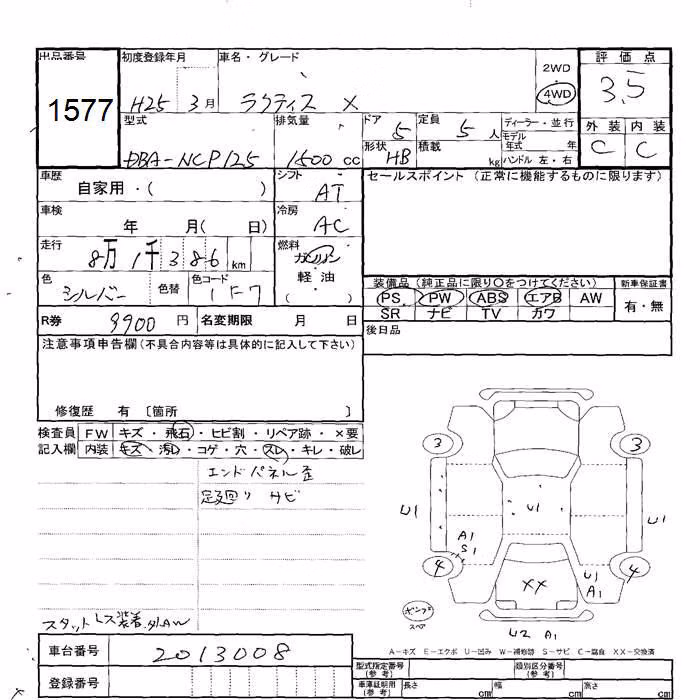 出品番号 初度登録年月 車名・グレード 評価点
1577 H25 3月 ラクティス X 2WD 4WD 3.5
型式 排気量 ドア 定員 ディーラー・並行 外装 内装
DBA-NCP125 1500cc 5 5人 モデル年式 年 C C
形状 HB 積載 kg ハンドル 左・右
車歴 自家用・( ) シフト AT セールスポイント (正常に機能するものに限ります)
車検 年 月( 日) 冷房 AC
走行 8万1千386km 燃料 ガソリン
軽油
( )
色 シルバー 色替 色コード 1F7
装備品 (純正品に限り○をつけてください) 新車保証書
PS PW ABS エアB AW 有・無
SR ナビ TV カワ
R券 9900円 名変期限 月 日
後日品
注意事項申告欄(不具合内容等は具体的に記入して下さい)
修復歴 有 〔箇所 〕
検査員 FW キズ・飛石・ヒビ割・リペア跡・×要
記入欄 内装 キズ・汚れ・コゲ・穴・スレ・キレ・破レ
エンドパネル歪
足廻り サビ
3 3
U1 U1 U1
A1
S1
4 4
U1
A1
XX
スペア
U2 A1
スタットレス装着
A-キズ E-エクボ U-凹み W-補修跡 S-サビ C-腐食 XX-交換済
車台番号 2013008
登録番号
型式指定番号(参考) 類別区分番号(参考)
車庫証明用(参考) 長さ cm 幅 cm 高さ cm